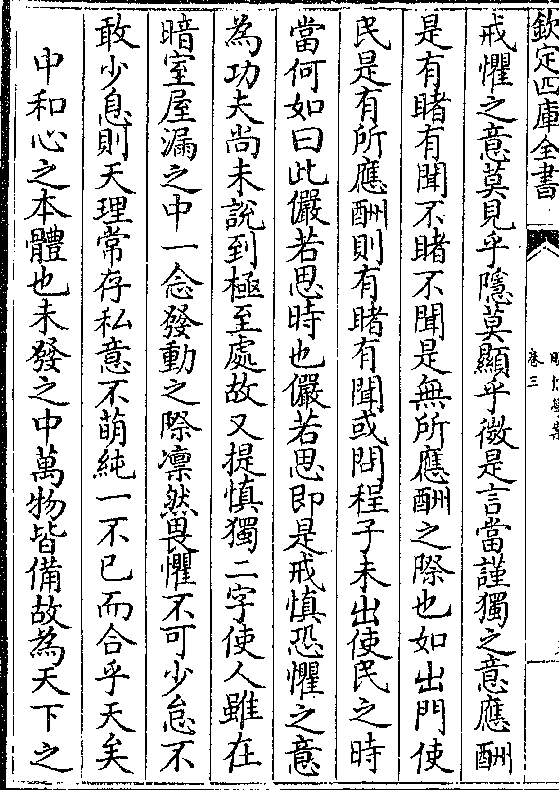 欽定四庫全書
明儒學案
卷三
戒懼之意莫見乎隱莫顯乎微是言當謹獨之意應酬
是有睹有聞不睹不聞是無所應酬之際也如出門使
民是有所應酬則有睹有聞或問程子未出使民之時
當何如曰此儼若思時也儼若思即是戒慎恐懼之意
為功夫尚未說到極至處故又提慎獨二字使人雖在
暗室屋漏之中一念發動之際凜然畏懼不可少怠不
敢少息則天理常存私意不萌純一不已而合乎天矣
中和心之本體也未發之中萬物皆備故為天下之